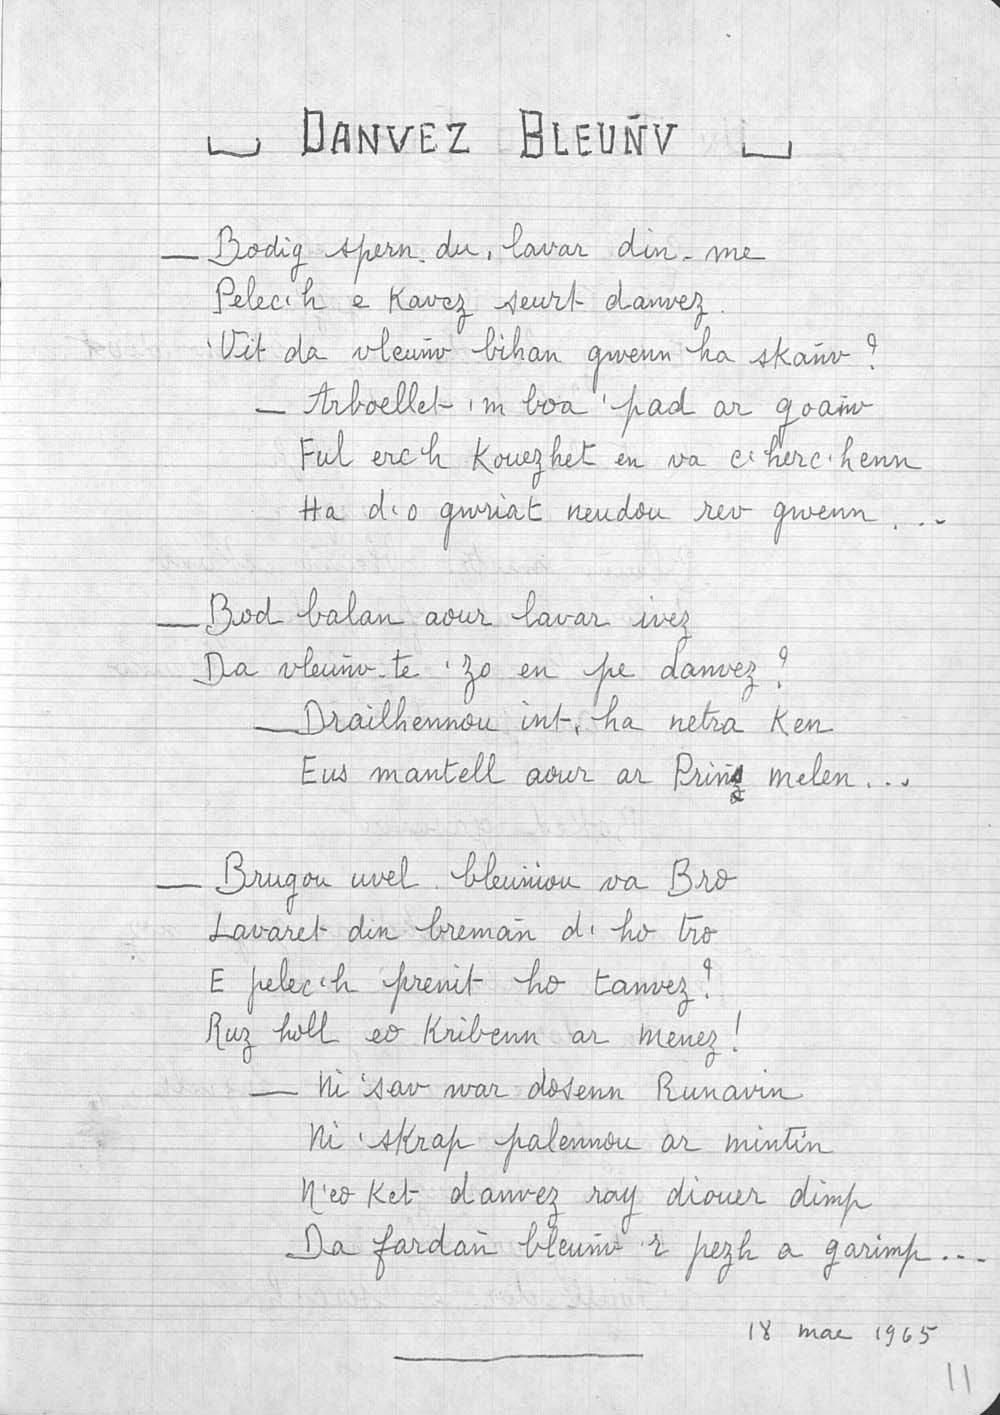 DANVEZ BLEUÑV
— Bodig spern-du, lavar din-me
Pelec'h e kavez seurt danvez
'Vit da vleuñv bihan gwenn ha skañv ?
— Arboellet 'm boa 'pad ar goañv
Ful erc'h kouezhet en va c'herc'henn
Ha d'o gwriat neudou rev gwenn ...
— Bod balan aour lavar ivez
Da vleuñv-te 'zo en pe danvez ?
— Drailhennou int, ha netra ken
Eus mantell aour ar Priñs melen ...
— Brugou uvel, bleuniou va Bro
Lavaret din bremañ d' ho tro
E pelec'h prenit ho tanvez ?
Ruz holl eo kribenn ar menez !
— Ni 'sav war dosenn Runavin
Ni 'skrap palennou ar mintin
N'eo ket danvez ray diouer dimp
Da fardañ bleuñv 'r pezh a garimp ...
18 mae 1965
11